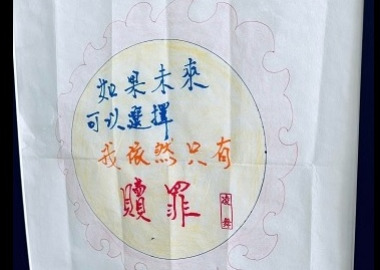 如果未來
可以選擇
我依然只有
贖罪